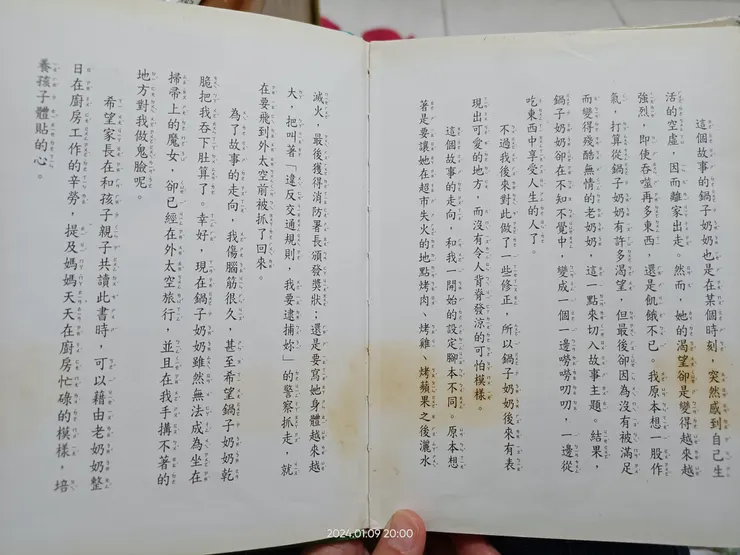 這個故事的鍋子奶奶也是在某個時刻，突然感到自己生
活的空虛，因而離家出走。然而，她的渴望卻是變得越來越
強烈，即使吞噬再多東西，還是飢餓不已。我原本想一股作
氣，打算從鍋子奶奶有許多渴望，但最後卻因為沒有被滿足
而變得殘酷無情的老奶奶，這一點來切入故事主題。結果，
鍋子奶奶卻在不知不覺中，變成一個一邊嘮嘮叨叨，一邊從
吃東西中享受人生的人了。
不過我後來對此做了一些修正，所以鍋子奶奶後來有表
現出可愛的地方，而沒有令人背脊發涼的可怕模樣。
這個故事的走向，和我一開始的設定腳本不同。原本想
著是要讓她在超市失火的地點烤肉、烤雞、烤蘋果之後灑水
滅火，最後獲得消防署長頒發獎狀；還是要寫她身體越來越
大，把叫著「違反交通規則，我要逮捕妳」的警察抓走，就
在要飛到外太空前被抓了回來。
為了故事的走向，我傷腦筋很久，甚至希望鍋子奶奶乾
脆把我吞下肚算了。幸好，現在鍋子奶奶雖然無法成為坐在
掃帚上的魔女，卻已經在外太空旅行，並且在我手搆不著的
地方對我做鬼臉呢。
希望家長在和孩子親子共讀此書時，可以藉由老奶奶整
日在廚房工作的辛勞，提及媽媽天天在廚房忙碌的模樣，培
養孩子體貼的心。
2024.01.09 20:00